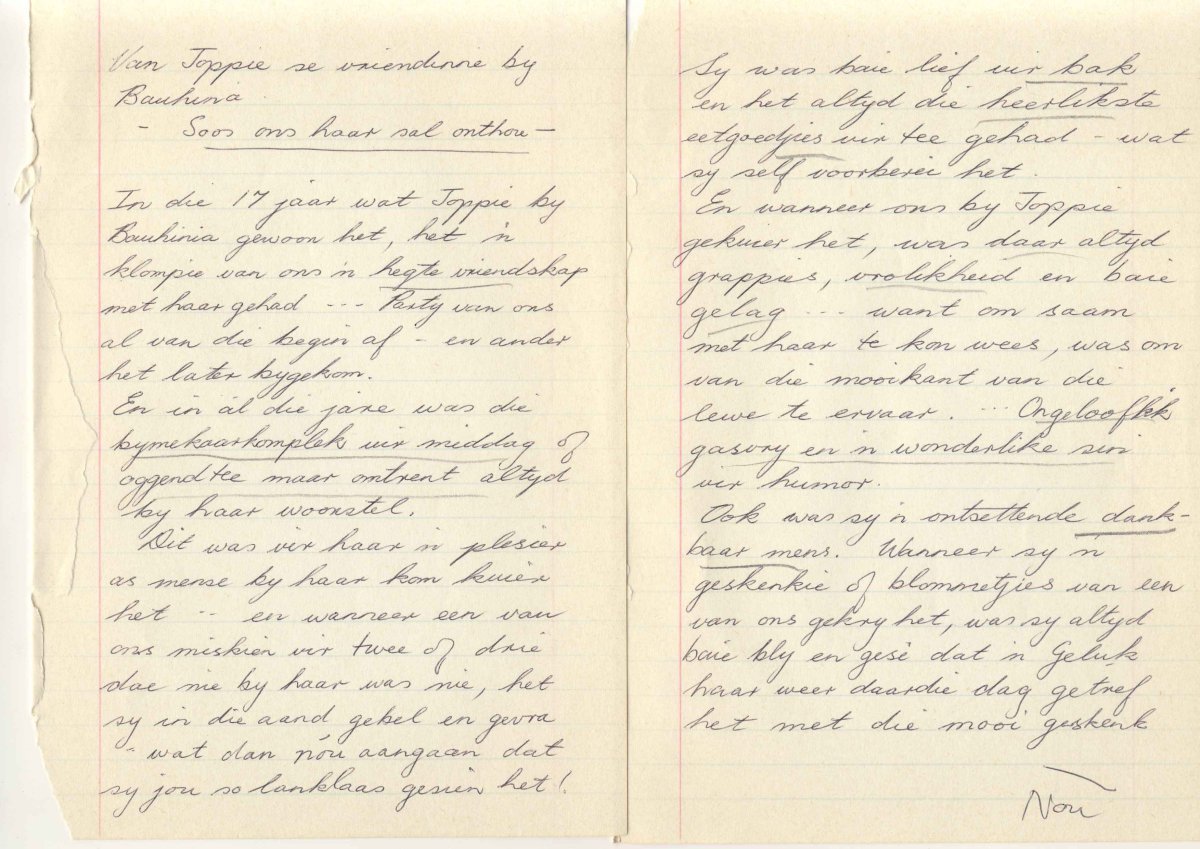 Van Toppie se vriendinne by
Bauhina
- Soos ons haar sal onthou -
In die 17 jaar wat Toppie by
Bauhinia gewoon het, het 'n
klompie van ons 'n hegte vriendskap
met haar gehad --- Party van ons
al van die begin af - en ander
het later bygekom.
En in ál die jare was die
bymekaarkomplek vir middag of
oggendtee maar omtrent altyd
by haar woonstel.
Dit was vir haar 'n plesier
as mense by haar kom kuier
het -- en wanneer een van
ons miskien vir twee of drie
dae nie by haar was nie, het
sy in die aand gebel en gevra
" wat dan nóu aangaan dat
sy jou so lanklaas gesien het!
Sy was baie lief vir bak
en het altyd die heerlikste
eetgoedjies vir tee gehad - wat
sy self voorberei het.
En wanneer ons by Toppie
gekuier het, was daar altyd
grappies, vrolikheid en baie
gelag --- want om saam
met haar te kon wees, was om
van die mooikant van die
lewe te ervaar. --- Ongelooflik
gasvry en 'n wonderlike sin
vir humor.
Ook was sy 'n ontsettende dank-
baar mens. Wanneer sy 'n
geskenkie of blommetjies van een
van ons gekry het, was sy altyd
baie bly en gesê dat 'n Geluk
haar weer daardie dag getref
het met die mooi geskenk
Nou